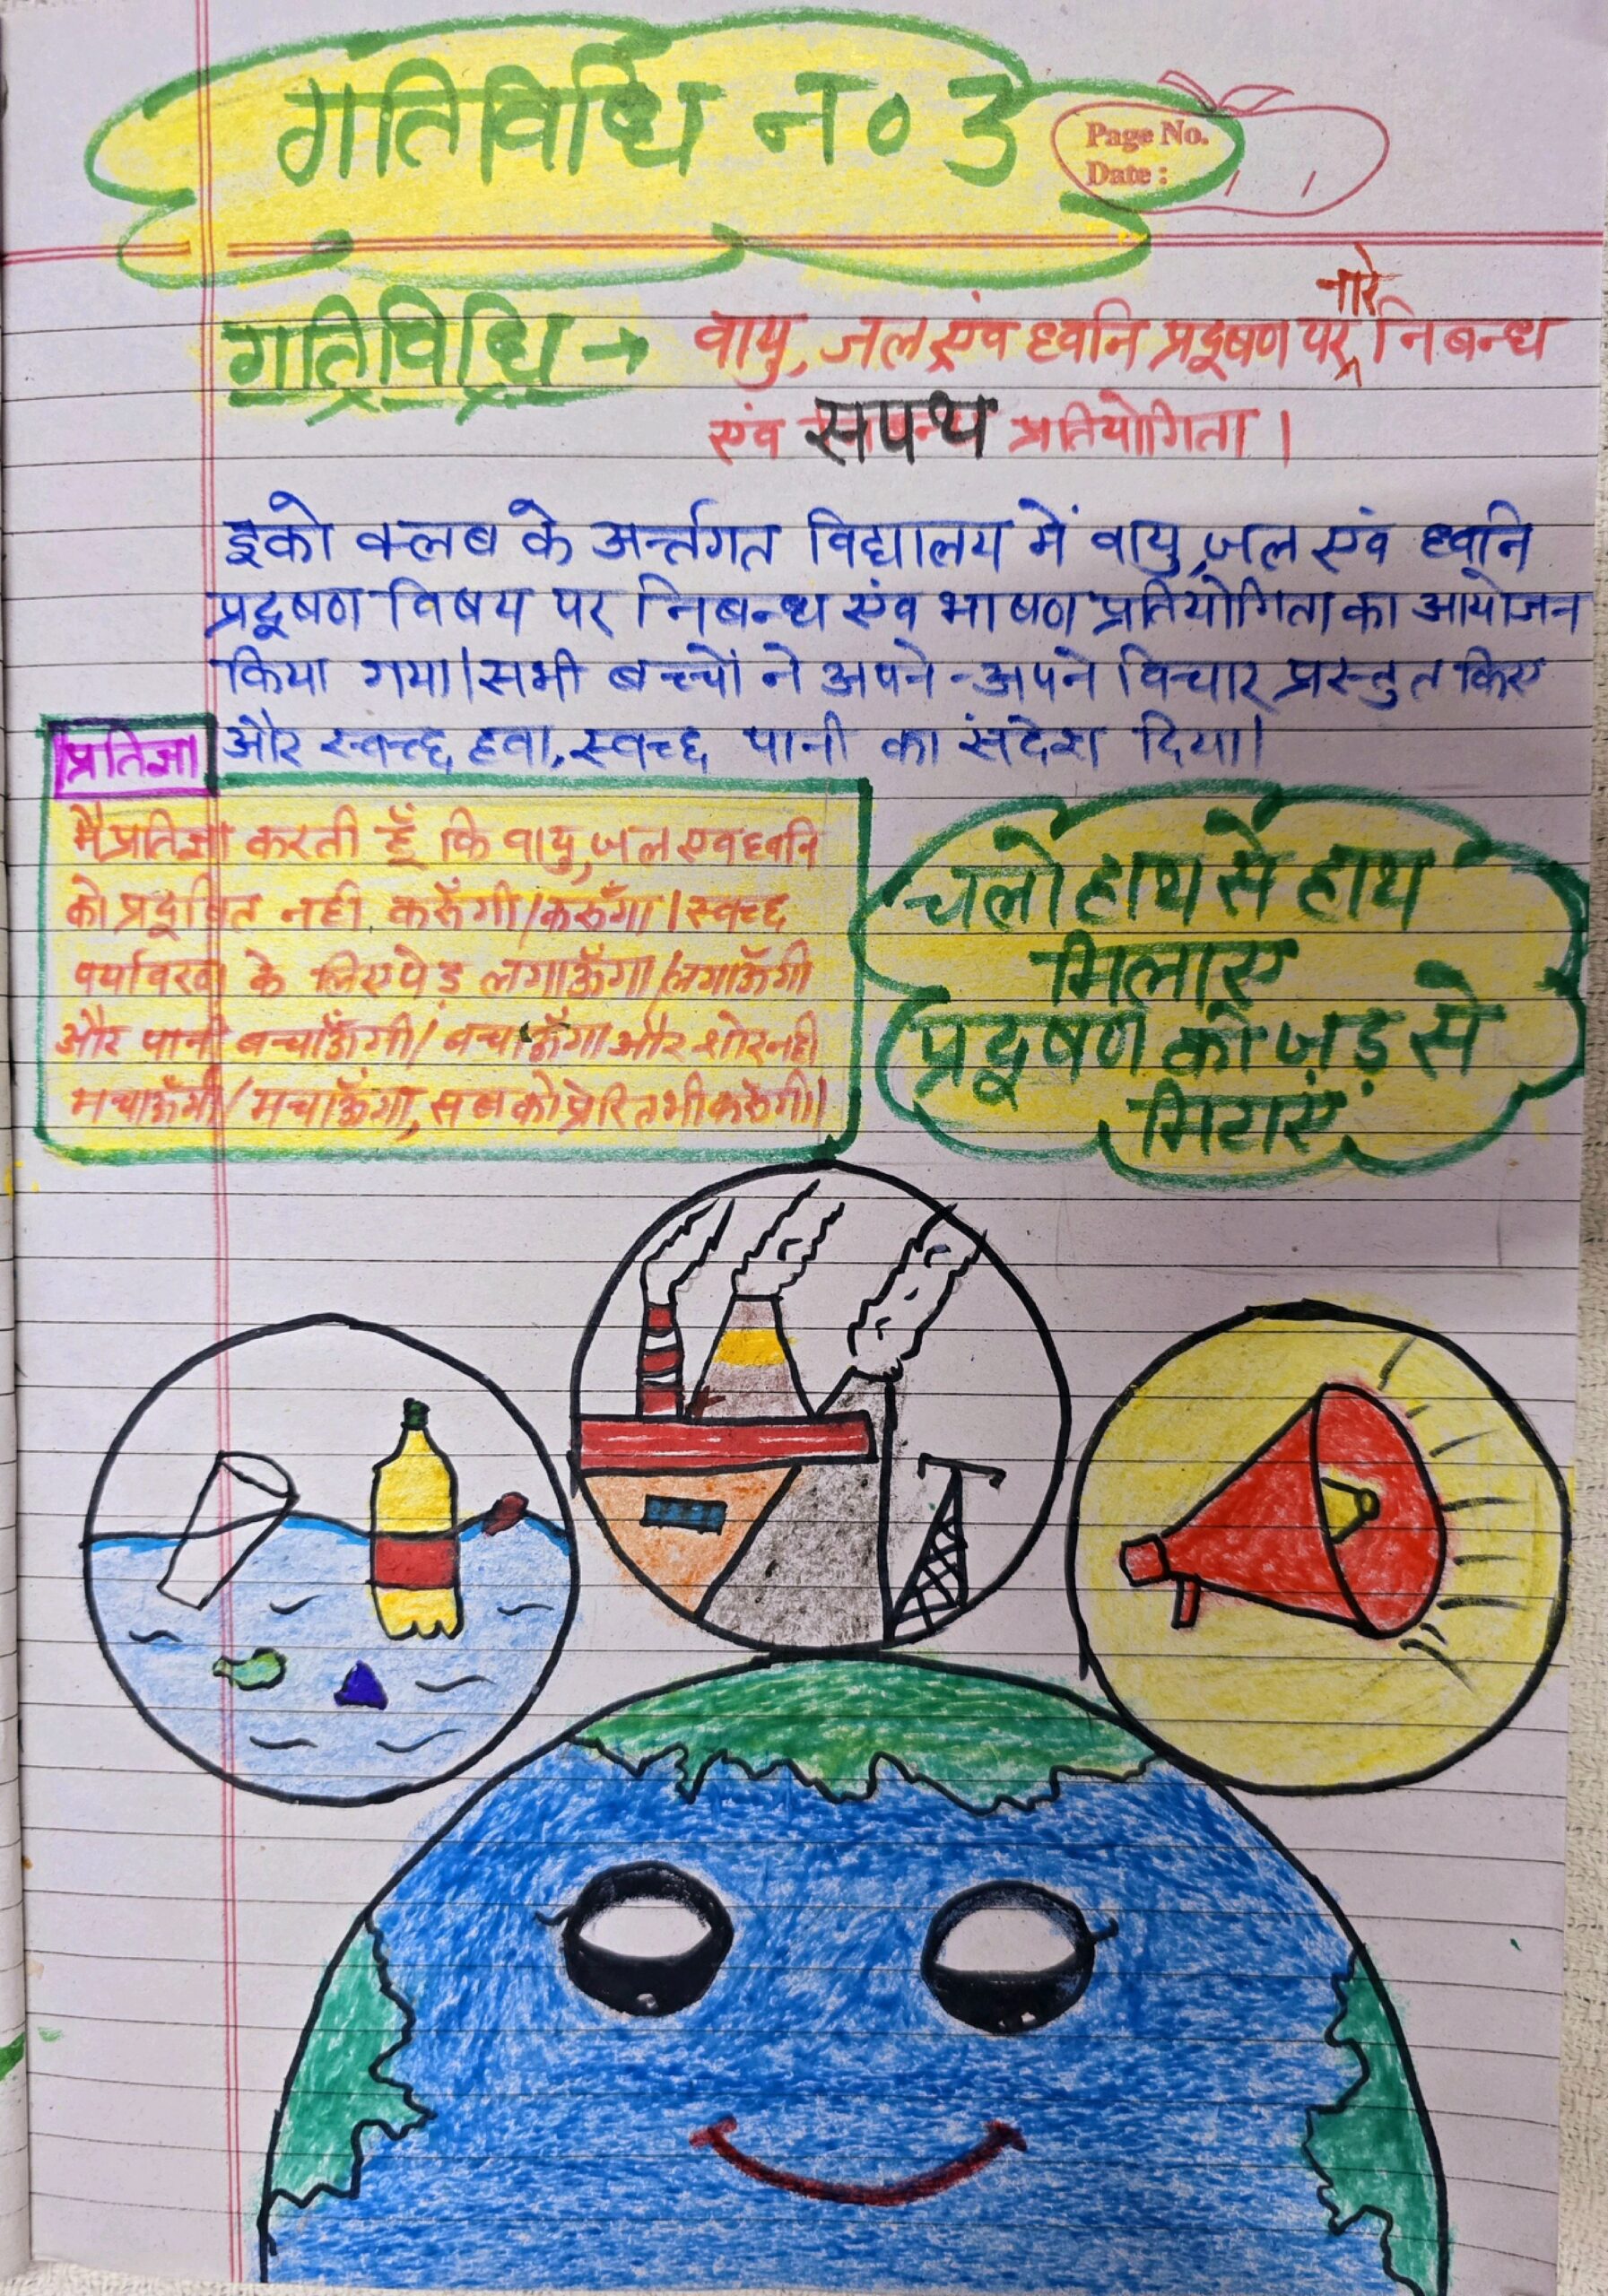 गतिविधि न० 3
Page No.
Date :
गतिविधि → वायु, जल एंव ध्वनि प्रदूषण पर नारे निबन्ध
एंव सपथ प्रतियोगिता।
इको क्लब के अर्न्तगत विद्यालय में वायु, जल एंव ध्वनि
प्रदूषण विषय पर निबन्ध एंव भाषण प्रतियोगिता का आयोजन
किया गया। सभी बच्चों ने अपने-अपने विचार प्रस्तुत किए
और स्वच्छ हवा, स्वच्छ पानी का संदेश दिया।
प्रतिज्ञा
मै प्रतिज्ञा करती हूँ कि वायु, जल एव ध्वनि
को प्रदूषित नही करुँगी/करुँगा। स्वच्छ
पर्यावरण के लिए पेड़ लगाऊँगा/लगाऊँगी
और पानी बचाऊँगी/बचाऊँगा और शोर नही
मचाऊँगी/मचाऊँगा, सब को प्रेरित भी करुंगी।
चलो हाथ से हाथ
मिलाए
प्रदूषण को जड़ से
मिटाएं